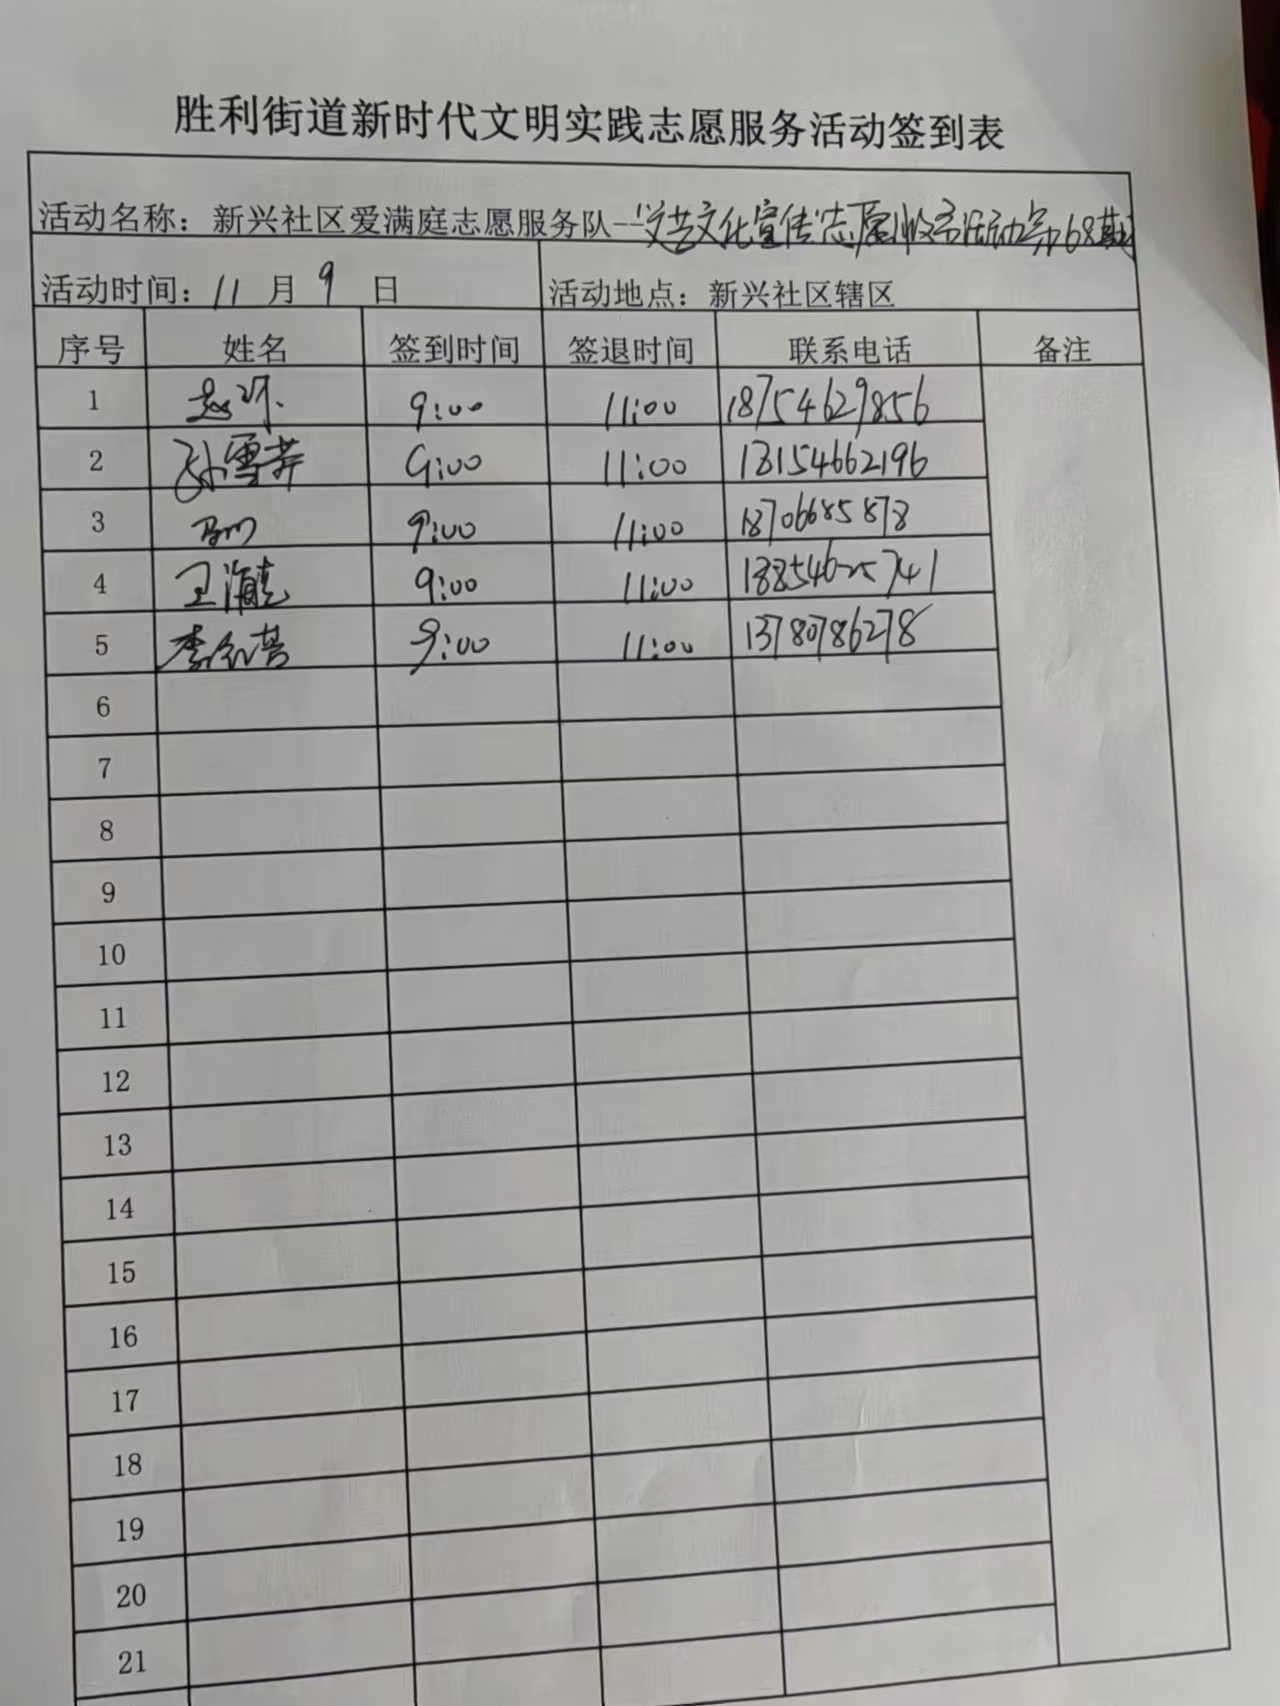 胜利街道新时代文明实践志愿服务活动签到表
活动名称：新兴社区爱满庭志愿服务队--"文艺文化宣传"志愿服务活动第68期
活动时间：11月9日 活动地点：新兴社区辖区
序号 姓名 签到时间 签退时间 联系电话 备注
1 赵环 9:00 11:00 18754629856
2 孙雪芹 9:00 11:00 13154662196
3 9:00 11:00 18706685878
4 王海 9:00 11:00
5 李红 9:00 11:00 13780786278
6
7
8
9
10
11
12
13
14
15
16
17
18
19
20
21